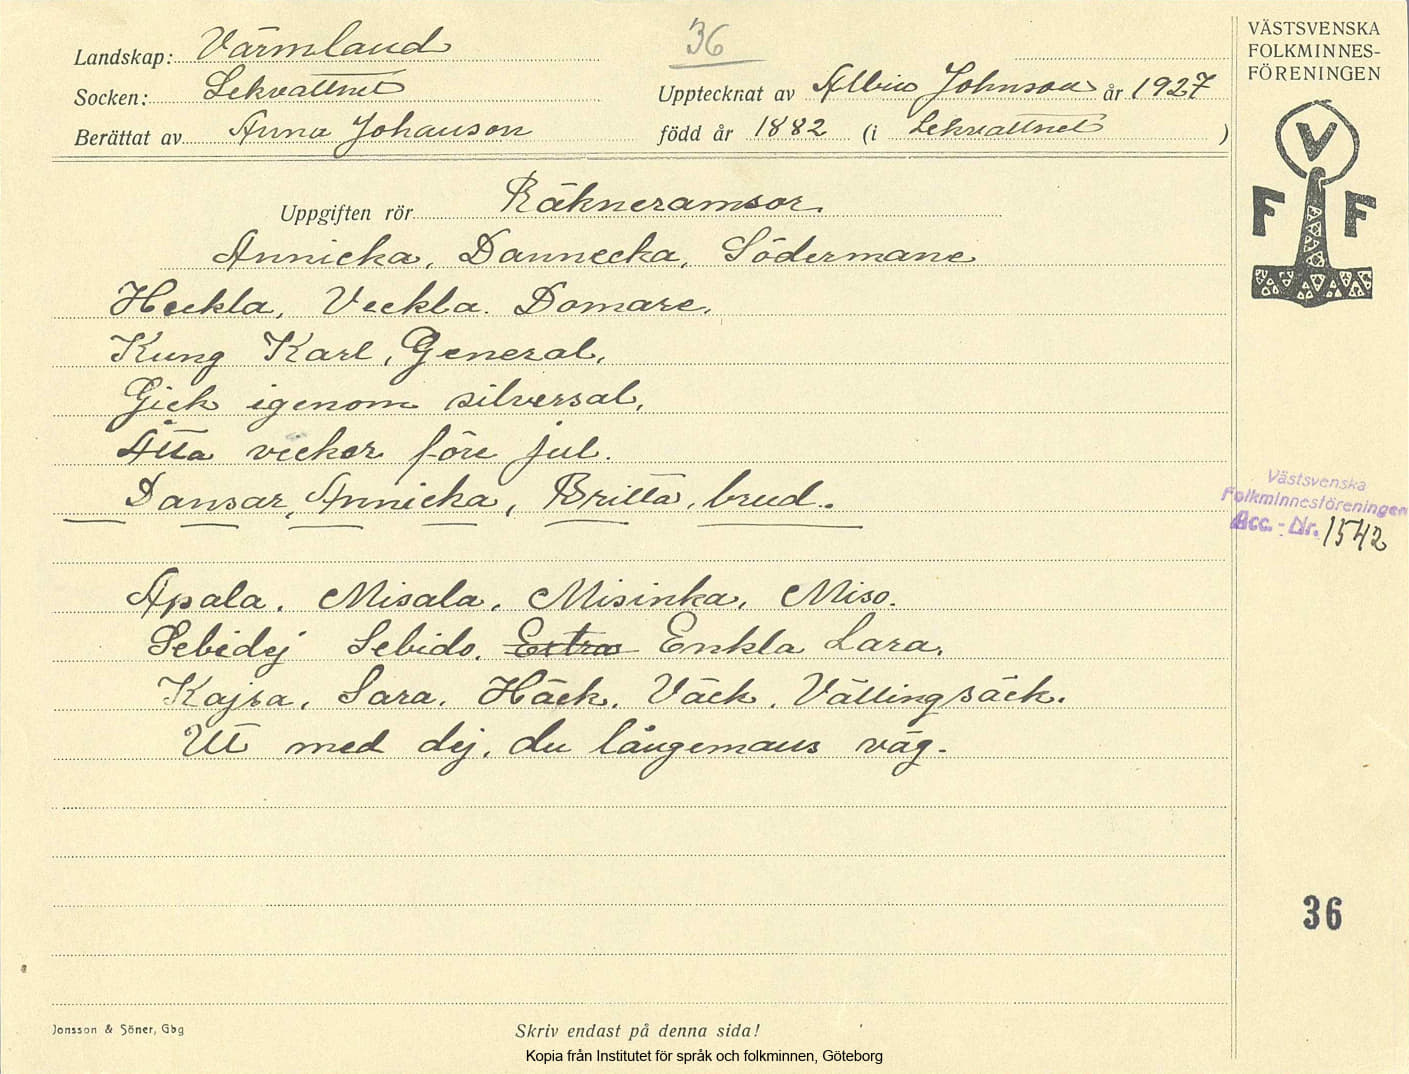 Landskap: Värmland
36
Socken: Lekvattnet
Upptecknat av Albin Johnson år 1927
Berättat av Anna Johanson
född år 1882 (i Lekvattnet )
VÄSTSVENSKA
FOLKMINNES-
FÖRENINGEN
V
F F
Uppgiften rör Räkneramsor.
Annicka, Dannecka, Södermane
Heckla, Veckla. Domare.
Kung Karl, General,
Gick igenom silversal,
Åtta vecker före jul.
Dansar, Annicka, Britta, brud.
Västsvenska
Folkminnesföreningen
Acc.-Nr. 1542
Apala, Misala, Misinka, Miso.
Sebedej Sebido. Extra Enkla Lara.
Kajsa, Sara. Häck. Väck. Vällingsäck.
Ut med dej, du långemans väg.
36
Jonsson & Söner, Gbg
Skriv endast på denna sida!
Kopia från Institutet för språk och folkminnen, Göteborg